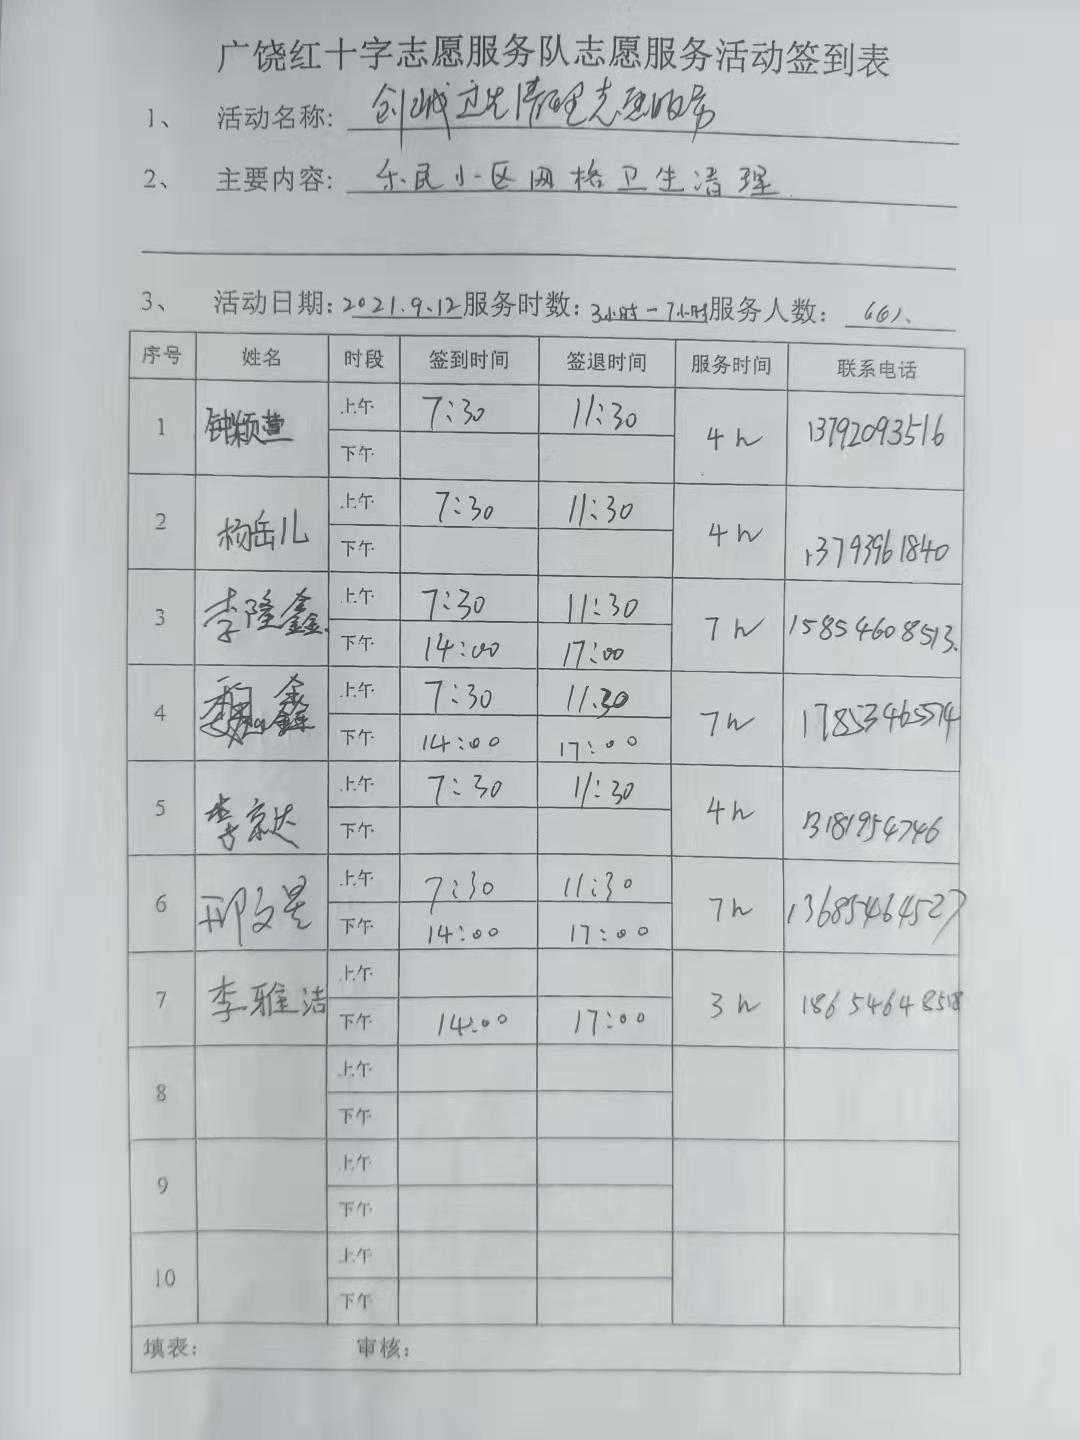 广饶红十字志愿服务队志愿服务活动签到表
1、 活动名称: 创城卫生清理志愿服务
2、 主要内容: 乐民小区网格卫生清理
3、 活动日期: 2021.9.12 服务时数: 3小时-7小时 服务人数: 6人
序号 姓名 时段 签到时间 签退时间 服务时间 联系电话
1 钟颖萱 上午 7:30 11:30 4h 13792093516
下午
2 杨岳儿 上午 7:30 11:30 4h 13793961840
下午
3 李隆鑫 上午 7:30 11:30 7h 15854608513
下午 14:00 17:00
4 鑫 上午 7:30 11:30 7h 17853465514
下午 14:00 17:00
5 李京达 上午 7:30 11:30 4h 13181954746
下午
6 邢文昊 上午 7:30 11:30 7h 13685464527
下午 14:00 17:00
7 李雅洁 上午 3h 18654648518
下午 14:00 17:00
8 上午
下午
9 上午
下午
10 上午
下午
填表: 审核: